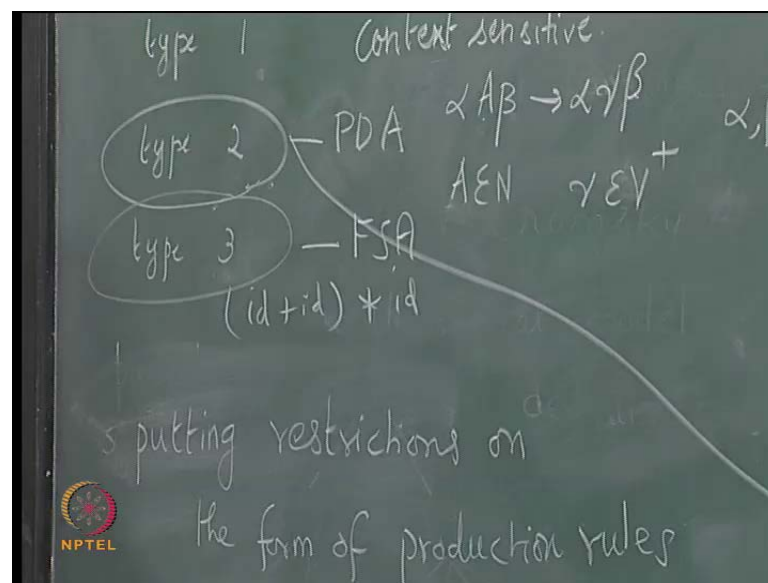 type 1 Context sensitive.
type 2 — PDA αAβ → αγβ α,
type 3 — FSA A∈N γ∈V⁺
(id + id) * id
putting restrictions on
the form of production rules
NPTEL